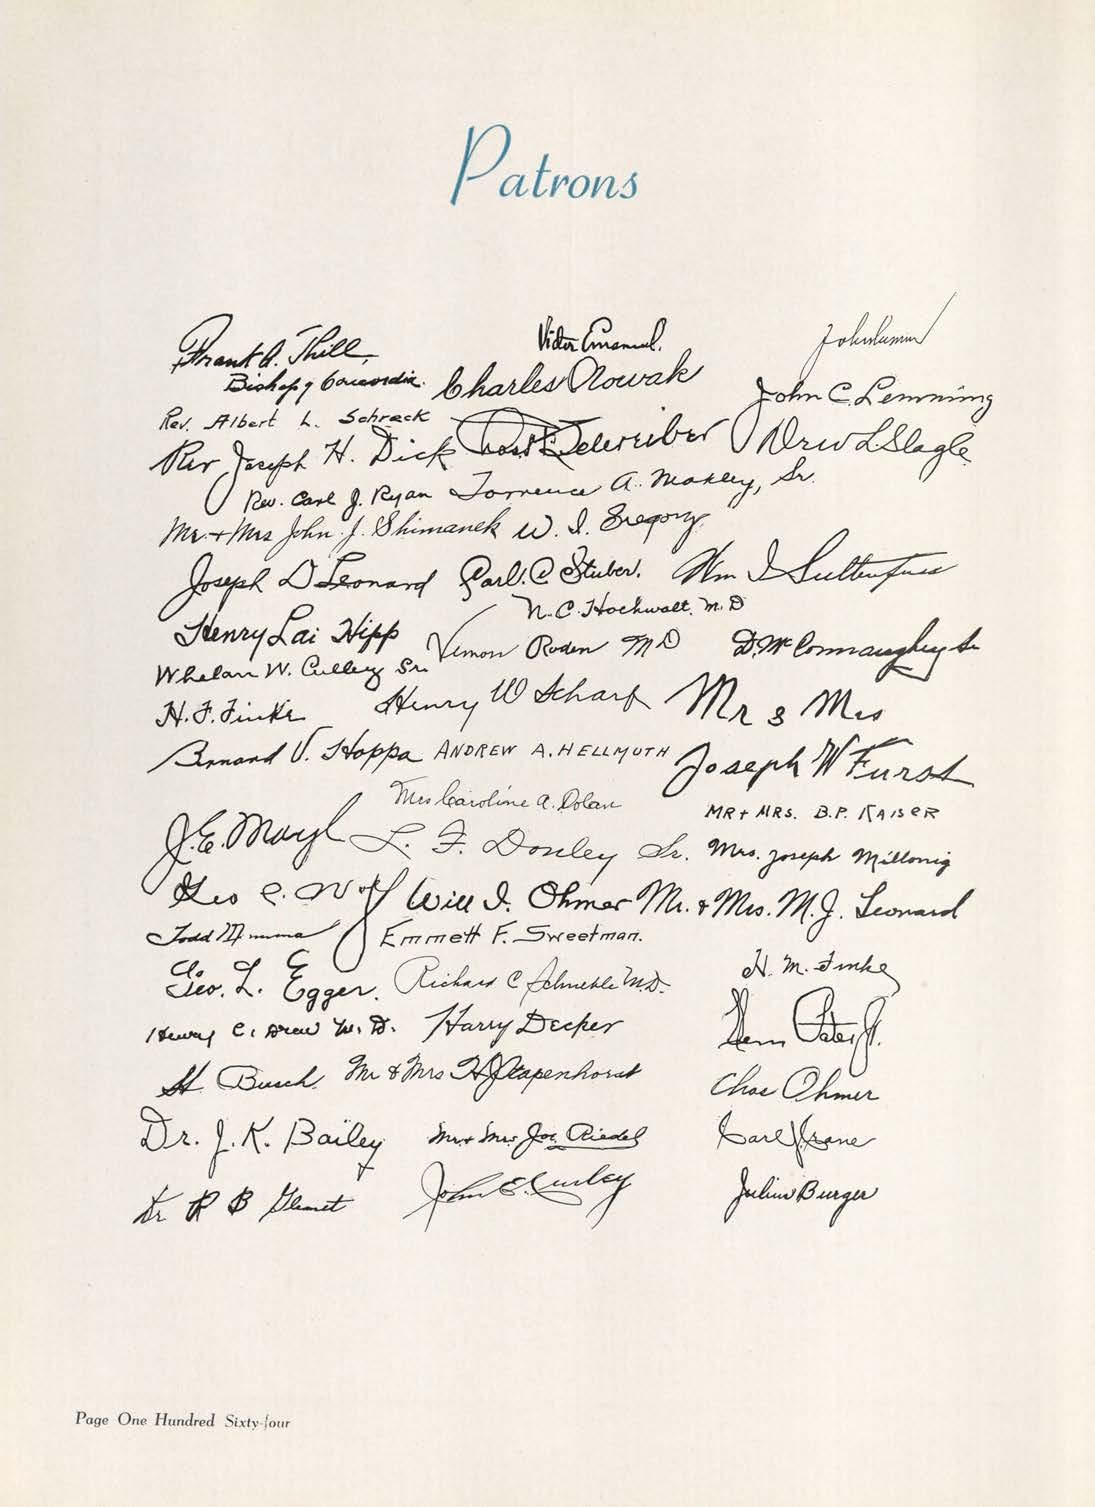 Patrons
Frank A. Thill,
Bishop of Concordia.
Victor Emanuel.
Charles Nowak
John C. Lemming
Rev. Albert L. Schreck
Rev Joseph H. Dick
L Slagle
Rev. Carl J. Ryan
Torrence A. Makley, Sr.
Mr. + Mrs John J. Shimanek
W. I. Gregory
Joseph D Leonard
Carl. C Stuber.
Wm I
N. C. Hochwalt. M. D
Henry Lai Hipp
Vernon Roden MD
D. Mc Connaughey Sr
Whelan W. Culley Sr.
H. F. Finke
Henry W Scharf
Mr & Mrs
Joseph W Furst
Bernard V. Hoppa
ANDREW A. HELLMUTH
Mrs Caroline A. Dolan
MR + MRS. B.P. KAISER
J. E. Mayl
L. F. Donley Sr.
Mrs. Joseph Millonig
Geo C.
Will I. Ohmer
Mr. & Mrs. M. J. Leonard
Todd Mumma
Emmett F. Sweetman.
H. M. Finke
Geo. L. Egger.
Richard C Schneble M.D.
Henry C. Drew M. D.
Harry Decker
Busch
Mr & Mrs H J Stapenhorst
Chas Ohmer
Dr. J. K. Bailey
Mr. + Mrs Joe Riedel
Carl J Crane
Dr R B
John E. Curley
Julius Burger
Page One Hundred Sixty-four